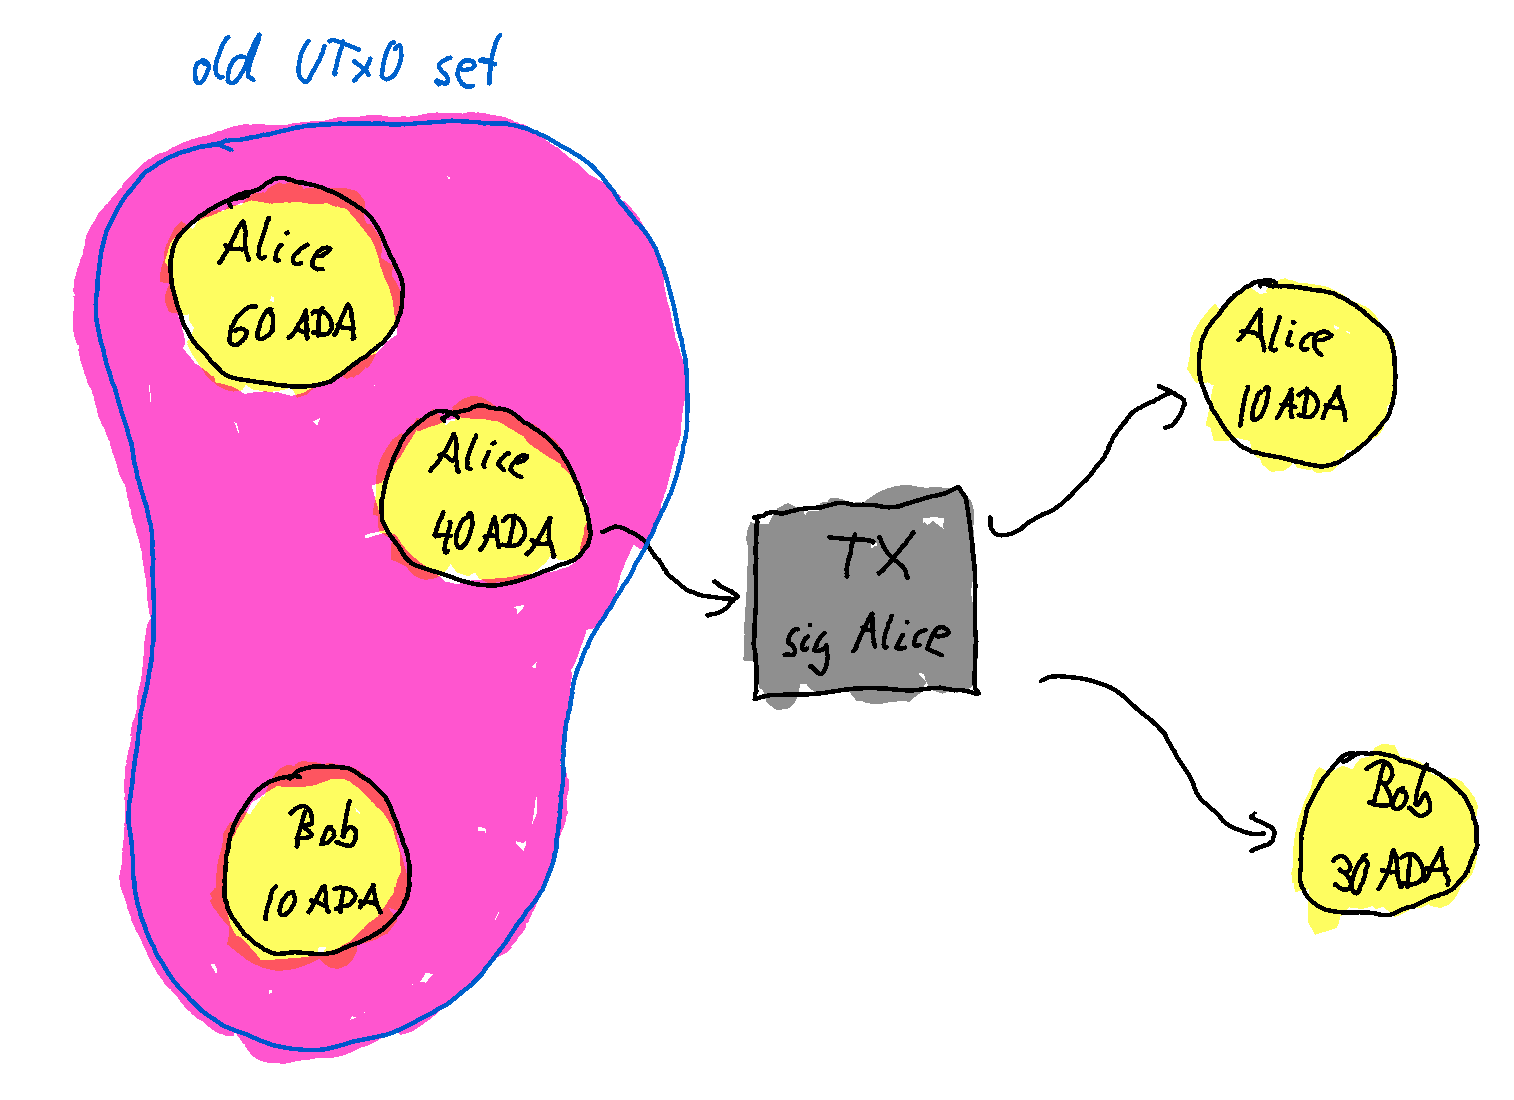 old UTxO set
Alice
60 ADA
Alice
40 ADA
Bob
10 ADA
TX
sig Alice
Alice
10 ADA
Bob
30 ADA